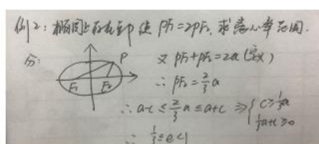 例2:椭圆上存在一点P 使 PF₁=2PF₂ 求离心率范围.
分:
P
F₁ F₂
又 PF₁+PF₂=2a(定义)
∴PF₂=2/3 a
∴a-c≤2/3 a≤a+c ⇒ { c≥1/3 a
1/3 a+c≥0
∴ 1/3≤e<1